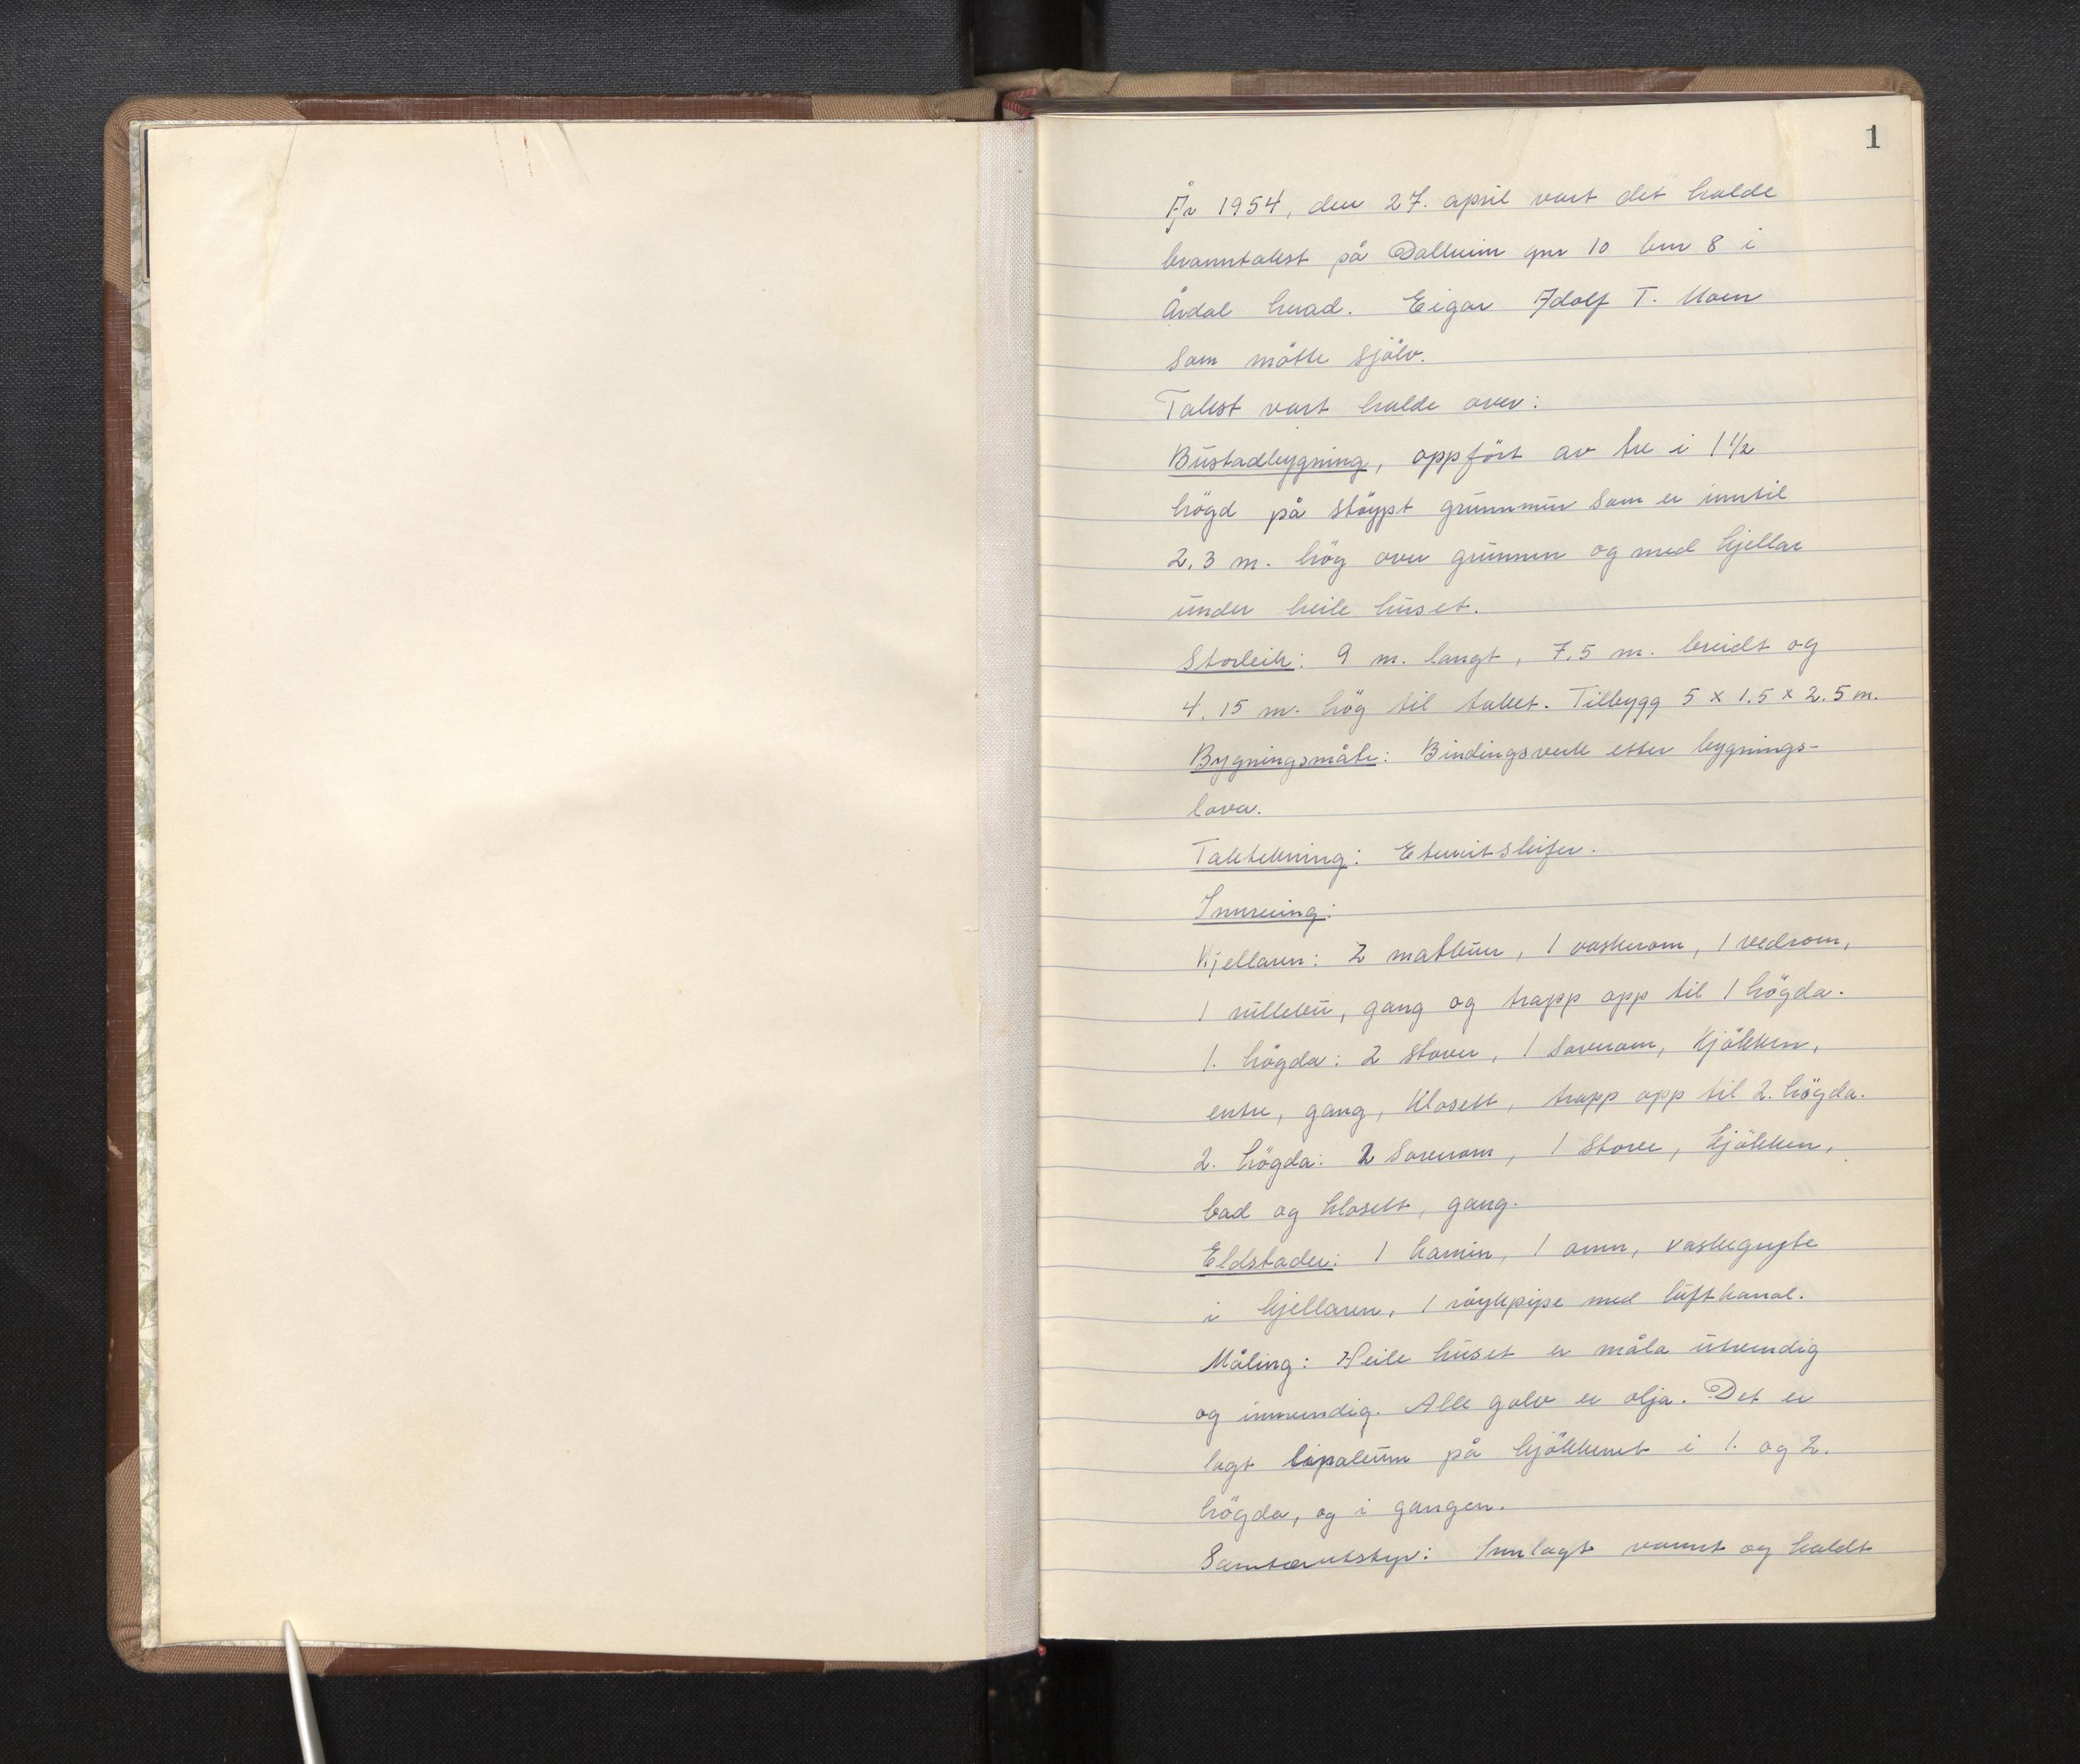 1
År 1954, den 27. april vart det halde
branntakst på Dalheim gnr 10 bnr 8 i
Årdal herad. Eigar Adolf T. Moen
som møtte sjølv.
Takst vart halde over:
Bustadbygning, oppført av tre i 1 1/2
høgd på støypt grunnmur som er inntil
2,3 m. høg over grunnen og med kjellar
under heile huset.
Storleik: 9 m. langt, 7.5 m. breidt og
4.15 m. høg til taket. Tilbygg 5 x 1.5 x 2.5 m.
Bygningsmåte: Bindingsverk etter bygnings-
lova.
Taktekning: Eternitskifer.
Innreiing:
Kjellaren: 2 matbuer, 1 vaskerom, 1 vedrom,
1 rullebu, gang og trapp opp til 1 høgda.
1. høgda: 2 stover, 1 soverom, kjøkken,
entre, gang, klosett, trapp opp til 2. høgda.
2. høgda: 2 soverom, 1 stove, kjøkken,
bad og klosett, gang.
Eldstader: 1 kamin, 1 omn, vaskegryte
i kjellaren, 1 røykpipe med luftkanal.
Måling: Heile huset er måla utvendig
og innvendig. Alle golv er olja. Det er
lagt linoleum på kjøkkenet i 1. og 2.
høgda, og i gangen.
Sanitærutstyr: Innlagt varmt og kaldt